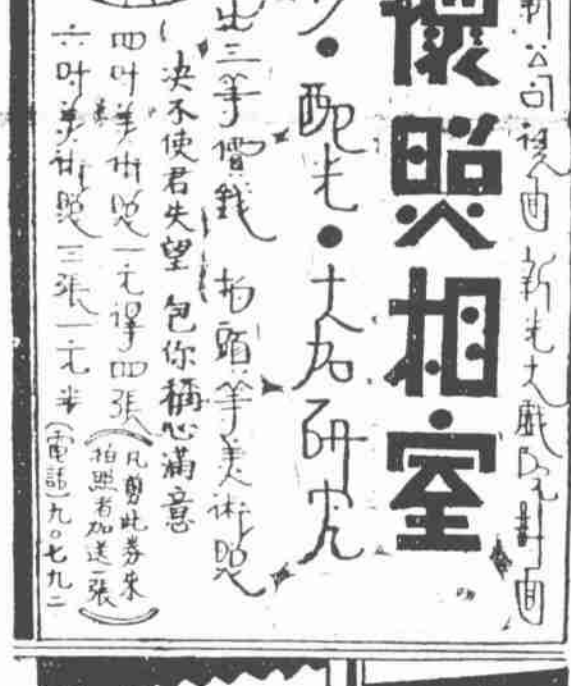 新公司面 新光大戲院對面
懷照相室
・配光・大加研究
出三等價錢 拍頭等美術照
决不使君失望 包你稱心滿意
四吋美術照一元得四張
(凡剪此券來
拍照者加送一張)
六吋美術照三張一元半
(電話)九〇七九二